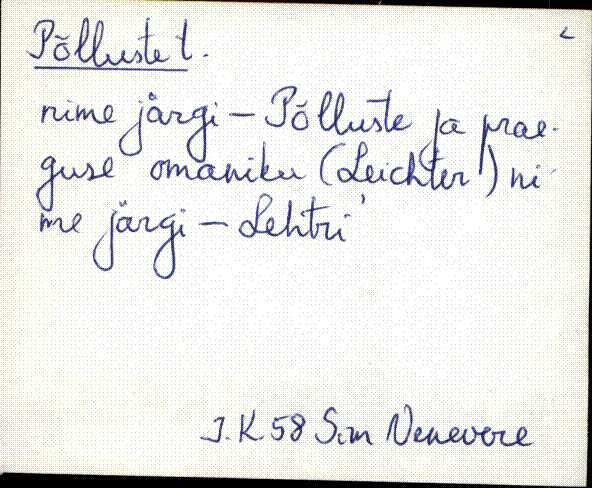 Põlluste t.
nime järgi – Põlluste ja prae-
guse omaniku (Leichter') ni-
me järgi – Lehtri'
J.K 58 Sim Venevere